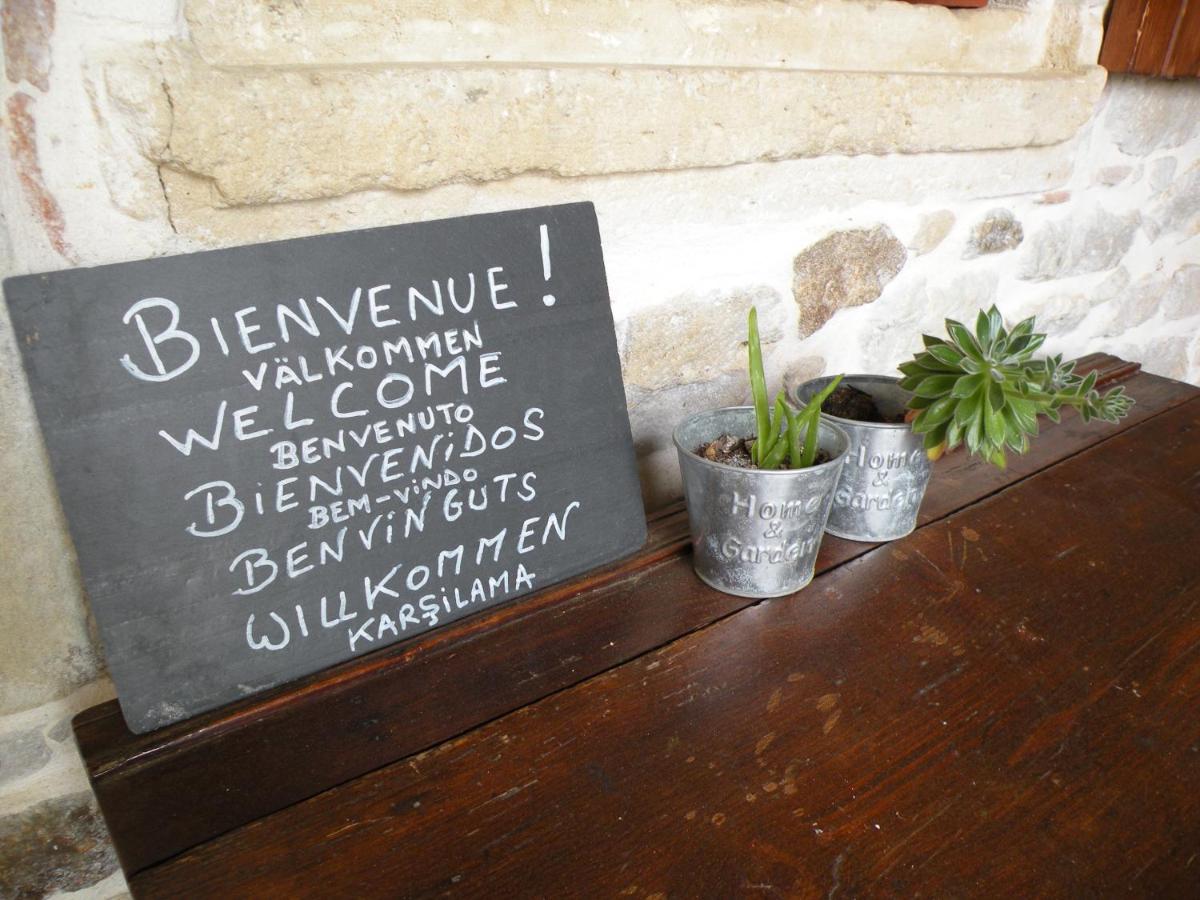 BIENVENUE !
VÄLKOMMEN
WELCOME
BENVENUTO
BIENVENIDOS
BEM-VINDO
BENVINGUTS
WILLKOMMEN
KARŞILAMA
Home
&
Garden
Home
&
Garden